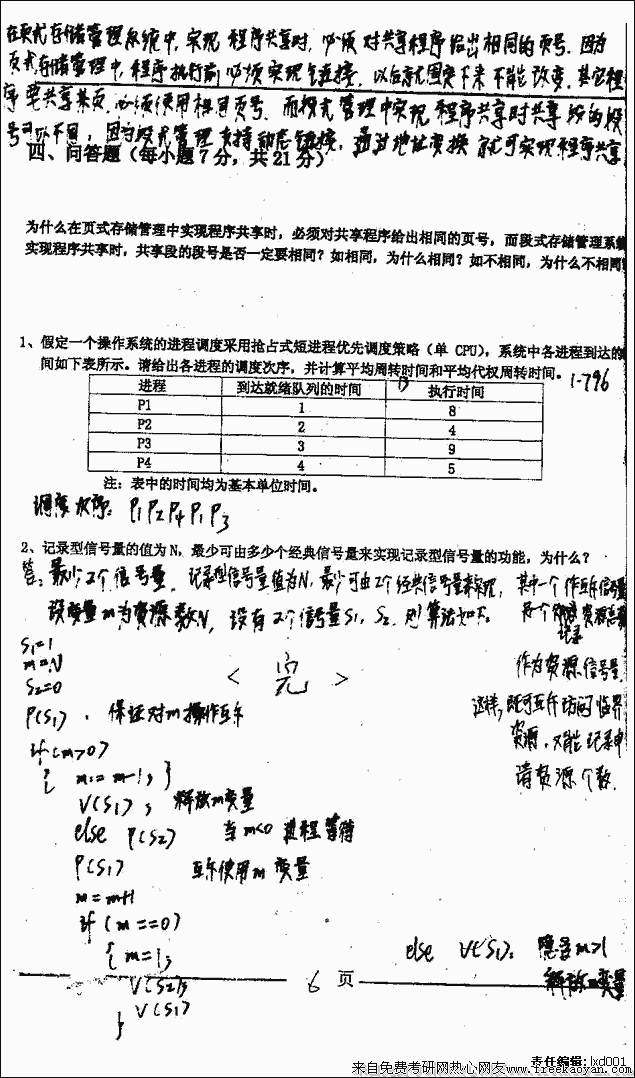 在页式存储管理系统中,实现程序共享时,必须对共享程序给出相同的页号.因为
页式存储管理中,程序执行前必须实现链接,以后就固定下来不能改变.其它程
序要共享某页,必须使用相同页号.而段式管理中实现程序共享时共享段的段
号可以不同,因为段式管理支持动态链接,通过地址变换就可实现程序共享
四、问答题(每小题7分,共21分)
为什么在页式存储管理中实现程序共享时,必须对共享程序给出相同的页号,而段式存储管理系统
实现程序共享时,共享段的段号是否一定要相同?如相同,为什么相同?如不相同,为什么不相同
1、假定一个操作系统的进程调度采用抢占式短进程优先调度策略(单 CPU),系统中各进程到达的
间如下表所示。请给出各进程的调度次序,并计算平均周转时间和平均代权周转时间。
进程 到达就绪队列的时间 执行时间
P1 1 8
P2 2 4
P3 3 9
P4 4 5
注:表中的时间均为基本单位时间。
调度次序: P1 P2 P4 P1 P3
2、记录型信号量的值为 N,最少可由多少个经典信号量来实现记录型信号量的功能,为什么?
答:最少2个信号量. 记录型信号量值为N,最少可由2个经典信号量来实现, 其中一个作互斥信号量
设变量m为资源数N, 设有2个信号量S1, S2, 则算法如下。
S1=1
m=N
S2=0
<完>
作为资源信号量.
P(S1), 保证对m操作互斥
这样,既可互斥访问临界
资源,又能记录申
请资源个数.
if (m>0)
{ m:= m-1; }
V(S1); 释放m变量
else P(S2) 当m<0 进程等待
P(S1) 互斥使用m变量
m=m+1
if (m==0)
{ m=1;
V(S2);
V(S1)
}
else V(S1);
释放m变量
6 页
责任编辑:lxd001
来自免费考研网热心网友www.freekaoyan.com